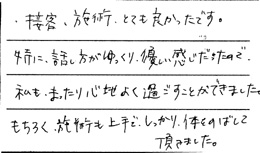 ・接客、施術、とても良かったです。
特に、話し方がゆっくり、優しい感じだったので、
私も、まったり心地よく過ごすことができました。
もちろん、施術も上手で、しっかり、体をのばして
頂きました。